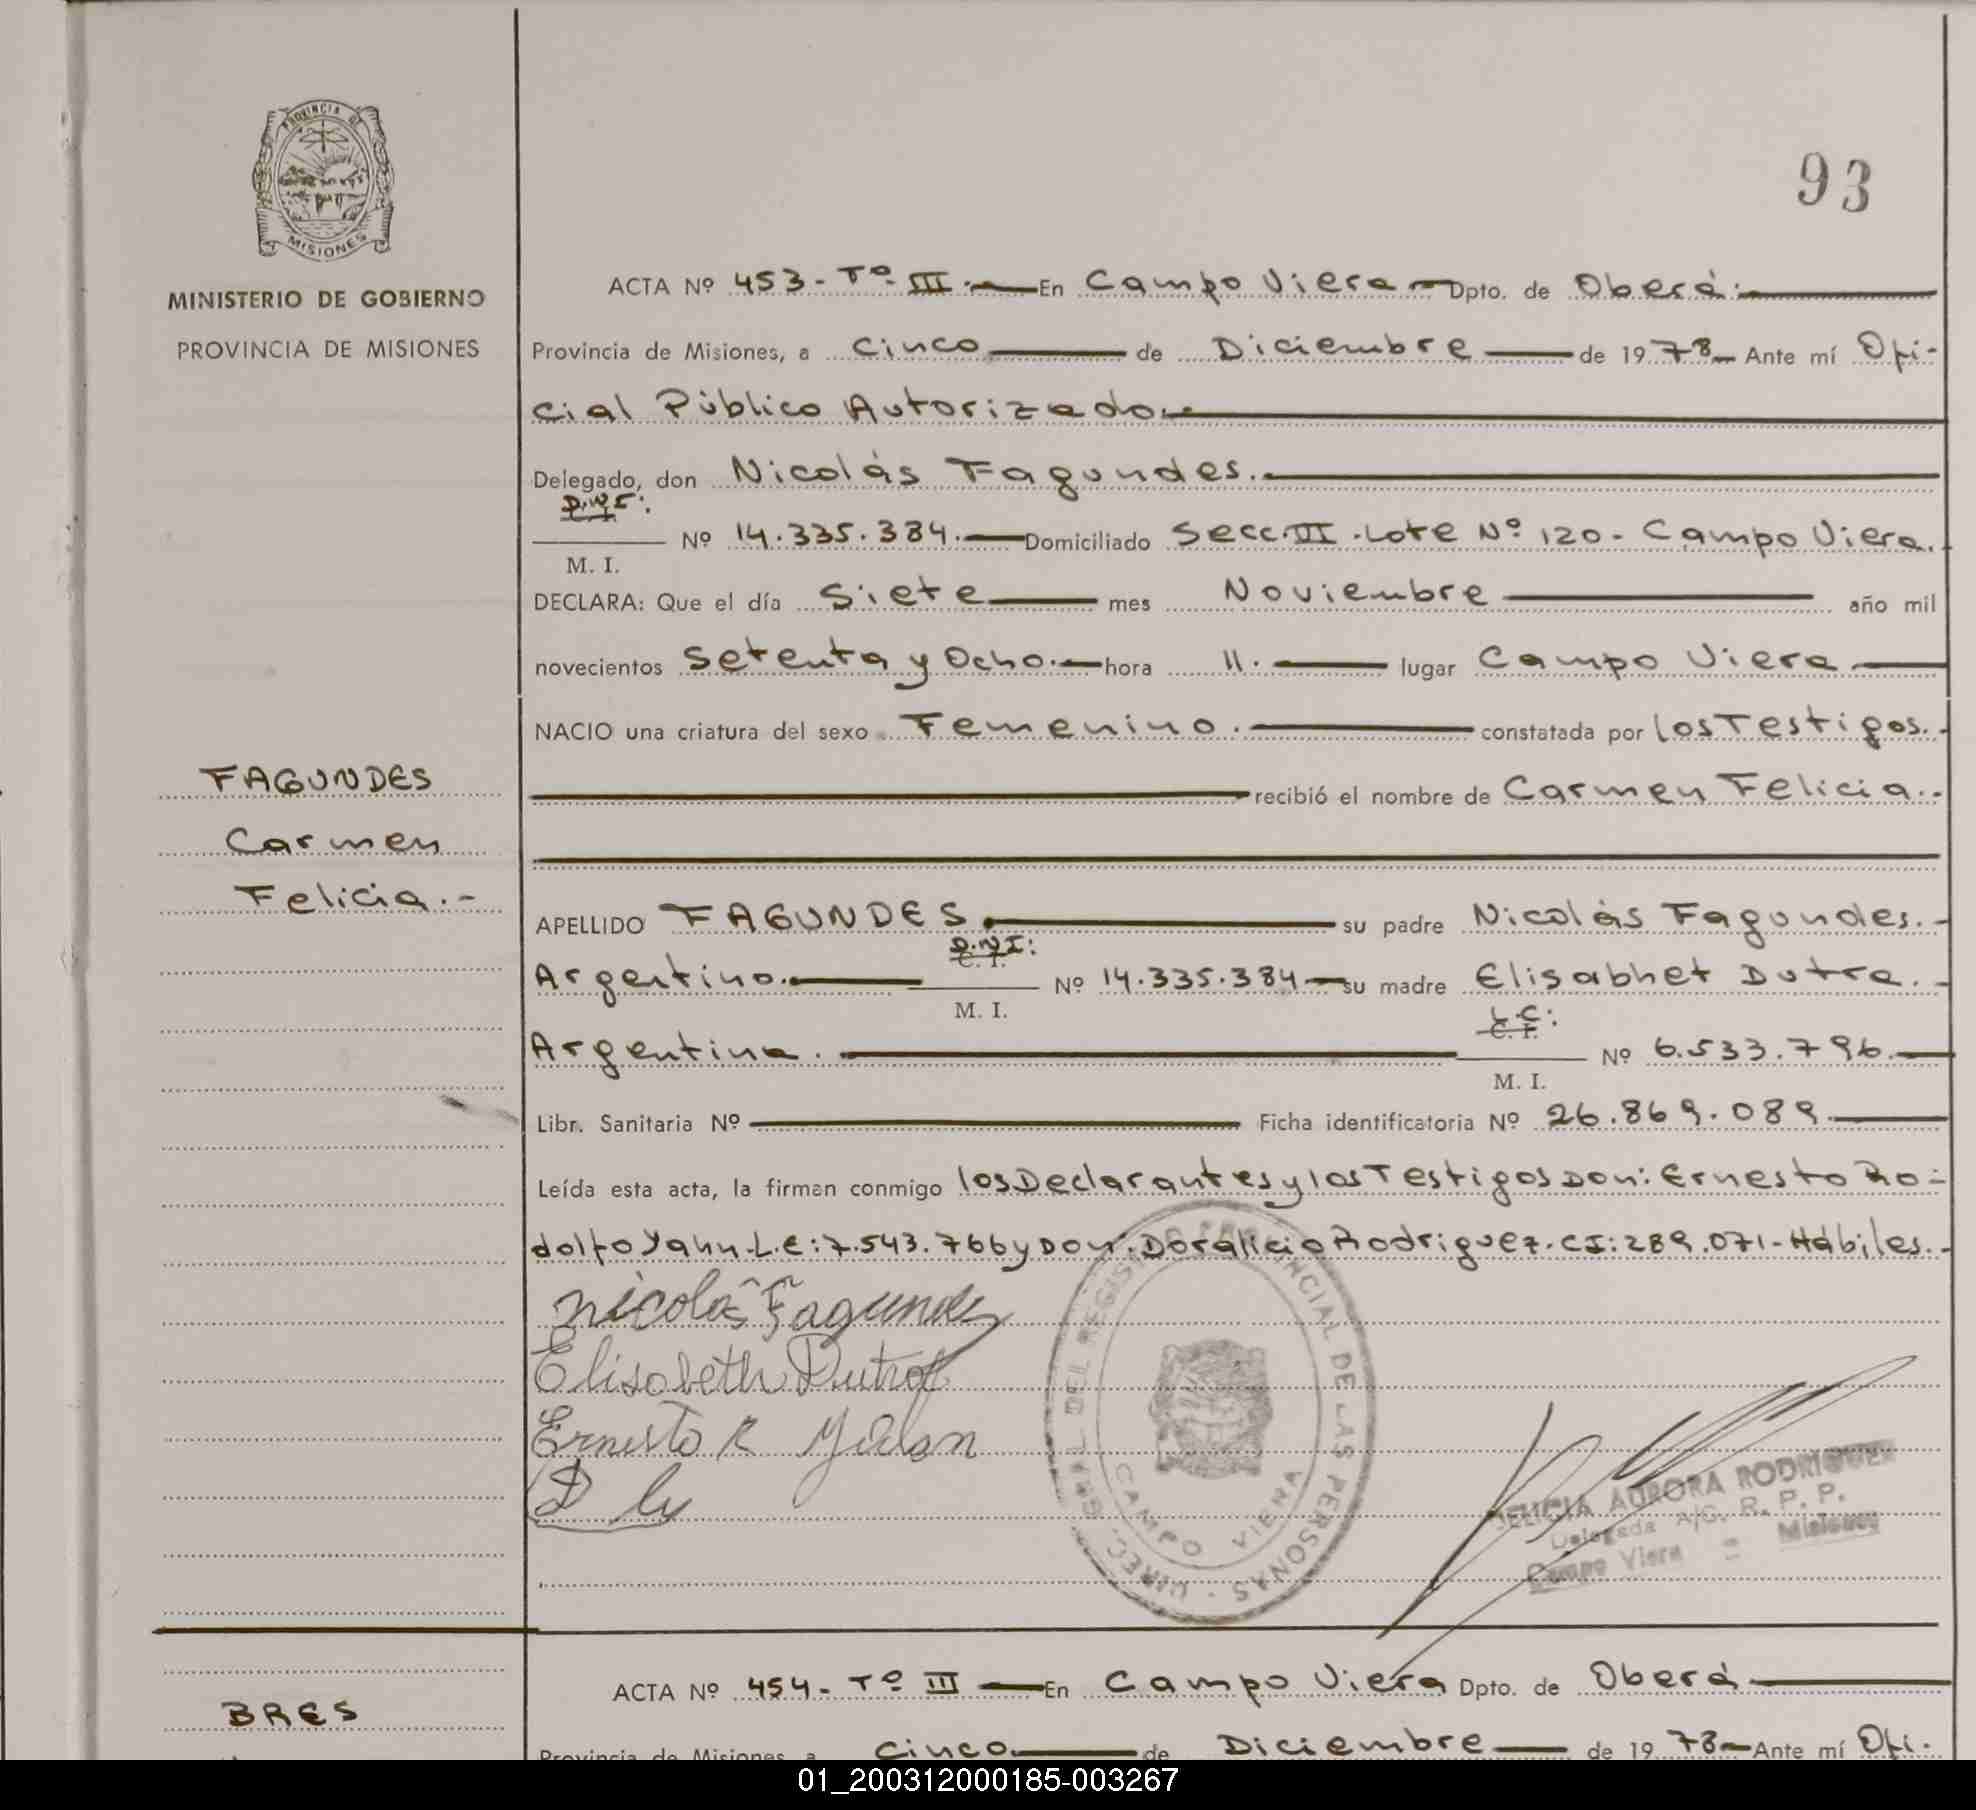 PROVINCIA DE
MISIONES
MINISTERIO DE GOBIERNO
PROVINCIA DE MISIONES
93
ACTA Nº 453- Tº III.- En Campo Viera - Dpto. de Oberá.
Provincia de Misiones, a Cinco de Diciembre de 1978 Ante mí Ofi-
cial Público Autorizado.-
Delegado, don Nicolás Fagundes.
D.N.I:
Nº 14.335.384. Domiciliado Secc.III.Lote Nº 120- Campo Viera.
M. I.
DECLARA: Que el día Siete mes Noviembre año mil
novecientos Setenta y Ocho.- hora 11. lugar Campo Viera
NACIO una criatura del sexo Femenino. constatada por los Testigos.-
recibió el nombre de Carmen Felicia.-
FAGUNDES
Carmen
Felicia.-
APELLIDO FAGUNDES. su padre Nicolás Fagundes.-
D.N.I:
C. I.
Argentino. Nº 14.335.384 su madre Elisabhet Dutra.-
M. I.
L.C:
C. I.
Argentina. Nº 6.533.796.
M. I.
Libr. Sanitaria Nº Ficha identificatoria Nº 26.869.089
Leída esta acta, la firman conmigo los Declarantes y los Testigos Don: Ernesto Ro-
dolfo Yahn.L.E:7.543.766 y Don: Doralicio Rodriguez.CI:289.071-Hábiles.-
Nicolás Fagundes
Elisabeth Dutra
Ernesto R
DIREC. GRAL DEL REGISTRO PROVINCIAL DE LAS PERSONAS
CAMPO VIERA
FELICIA AURORA RODRIGUEZ
Delegada A/C. R. P. P.
Campo Viera - Misiones
ACTA Nº 454- Tº III En Campo Viera Dpto. de Oberá
BRES
Provincia de Misiones a Cinco de Diciembre de 1978 Ante mí Ofi-
01_200312000185-003267